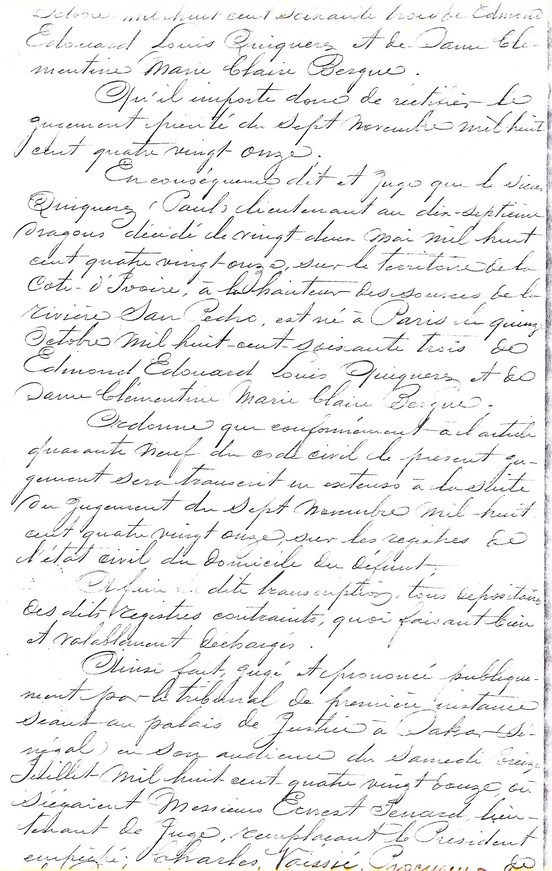 Octobre mil huit cent soixante trois de Edmond
Edouard Louis Quiquerez et de Dame Clé-
mentine Marie Claire Bergue.
Qu'il importe donc de rectifier le
jugement précité du sept Novembre mil huit
cent quatre vingt onze.
En conséquence dit et juge que le sieur
Quiquerez (Paul) lieutenant au dix-septième
dragons décédé le vingt deux Mai mil huit
cent quatre vingt onze, sur le territoire de la
Côte-d'Ivoire, à la hauteur des sources de la
rivière San Pedro, est né à Paris le quinze
Octobre mil huit-cent-soixante trois de
Edmond Edouard Louis Quiquerez et de
Dame Clémentine Marie Claire Bergue.
Ordonne que conformément à l'article
quarante neuf du code civil le présent ju-
gement sera transcrit in extenso à la suite
du jugement du sept Novembre mil-huit
cent quatre vingt onze, sur les registres de
l'état civil du domicile du défunt.
A faire dite transcription, tous dépositaires
des dits registres contraints, quoi faisant bien
et valablement déchargés.
Ainsi fait, jugé et prononcé publique-
ment par le tribunal de première instance
séant au palais de Justice à Dakar (Sé-
négal) en son audience du Samedi
Juillet mil huit cent quatre vingt douze, où
siégeaient Messieurs Ernest lieu-
tenant de Juge, remplaçant le Président
empêché; Charles, Vaissié, Procureur de